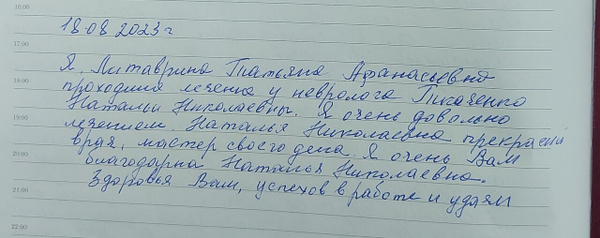 16:00
18.08 2023 г
17:00
Я. Литаврина Татьяна Афанасьевна
проходила лечение у невролога Ткаченко
18:00
Натальи Николаевны. Я очень довольна
лечением. Наталья Николаевна прекрасный
19:00
врач, мастер своего дела. Я очень Вам
20:00
благодарна Наталья Николаевна.
Здоровья Вам, успехов в работе и удачи
21:00
22:00